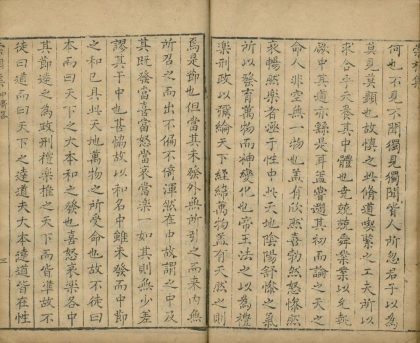 何也不見不聞獨見獨聞嘗人所忽君子以為
莫見莫顯也故慎之此脩道喫緊之工夫所以
求合乎天養其中體也竟兢兢舜業業以允執
厥中其道亦錄是耳蓋嘗遡其初而論之天之
命人非空無一物也蓋有欣然喜勃然怒慘然
哀暢然樂者麗于性中此天地陰陽舒慘之氣
所以發育萬物而神變化也帝王法之以為禮
樂刑政以彌綸天下經緯萬物蓋有天然之則
焉是節也但當其未發外無所引之而来內無
所召之而出不偏不倚渾然在中故謂之中及
其既發當喜當怒當哀當樂一如其則無少差
謬其于中也甚愜故以和名中雖未發而中節
之和已具此天地萬物之所受命也故不徒曰
本而曰天下之大本和之發也喜怒哀樂各中
其節達之為政刑禮樂推之天下而皆準故不
徒曰道而曰天下之達道夫大本達道皆在性
三